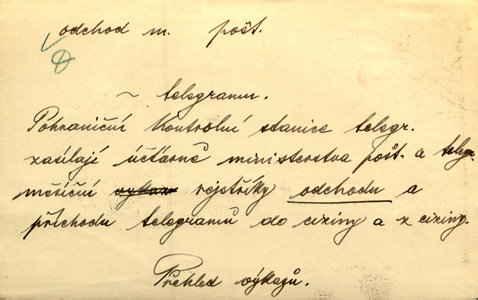 odchod m. pošt.
~ telegramu.
Pohraniční kontrolní stanice telegr.
zasílají účtárně ministerstva pošt. a telegr.
měsíční výkaz rejstříky odchodu a
příchodu telegramů do ciziny a z ciziny.
Přehled výkazů.